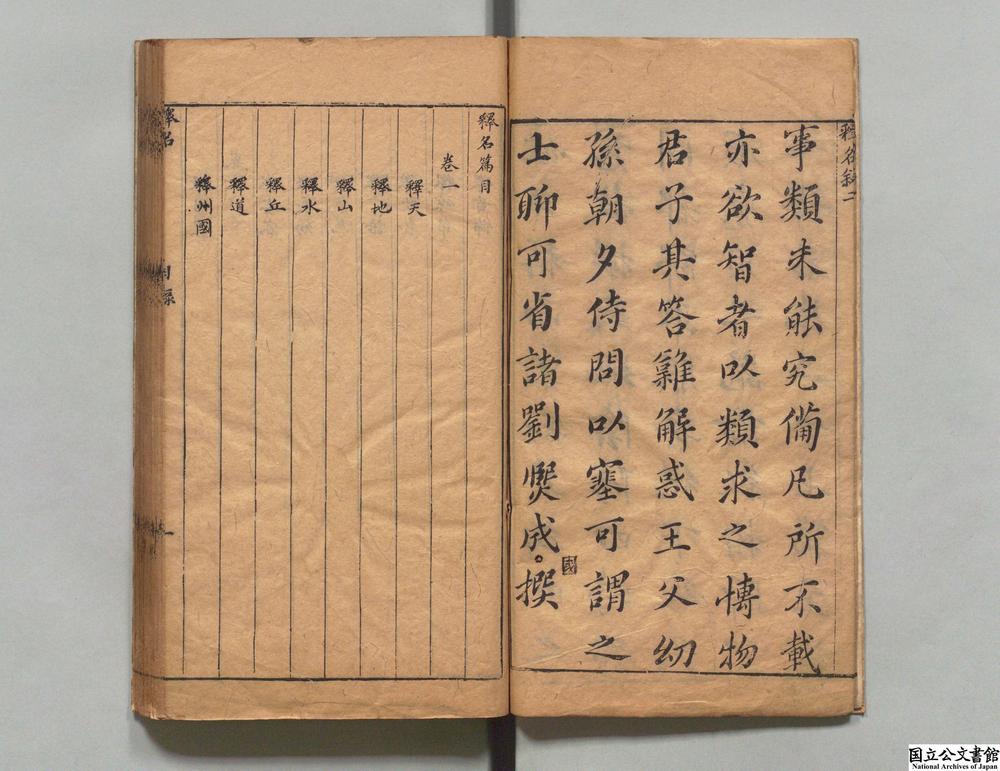 釋名敘二
事類未能究備凡所不載
亦欲智者以類求之愽物
君子其答難解惑王父幼
孫朝夕侍問以塞可謂之
士聊可省諸劉熈成。撰
國
釋名篇目
卷一
釋天
釋地
釋山
釋水
釋丘
釋道
釋州國
釋名
目録
一
国立公文書館
National Archives of Japan